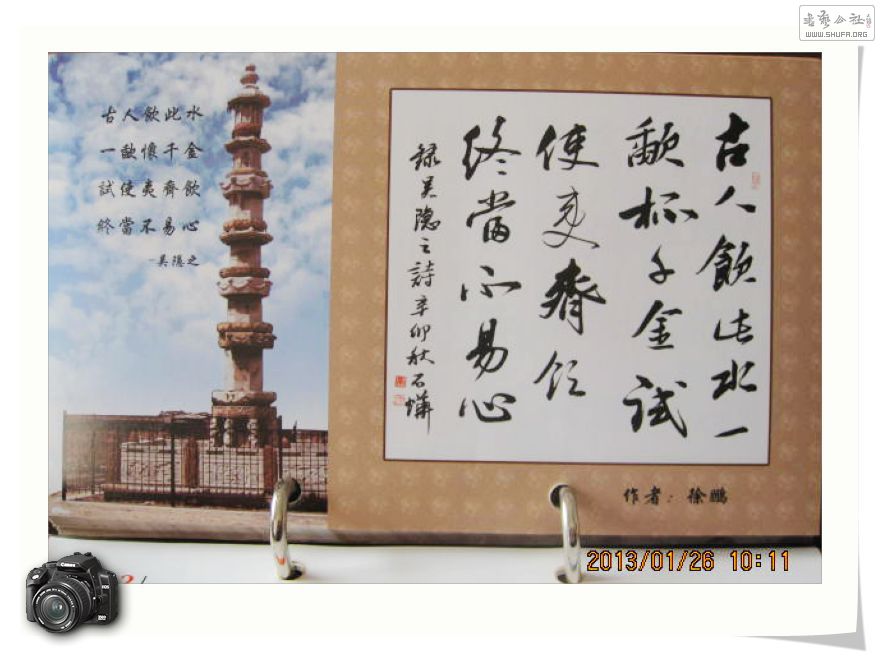 書藝公社
WWW.SHUFA.ORG
古人飲此水
一歃懷千金
試使夷齊飲
終當不易心
-吳隱之
古人飲此水一
歃怀千金試
使夷齊飲
終當不易心
録吴隐之詩辛卯秋石
作者：徐鵬
2013/01/26 10:11
Canon